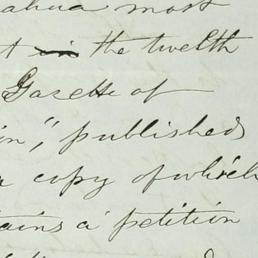 most
in the twelfth
Gazette of
published
copy of which
a petition